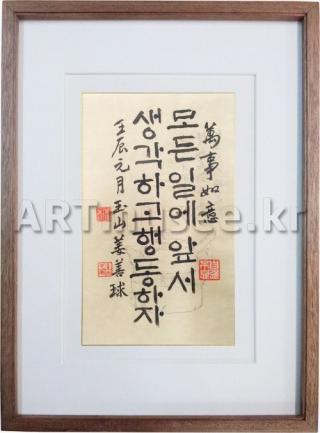 萬事如意
모든일에앞서
생각하고행동하자
壬辰元月玉山姜善球
ARTmusee.kr